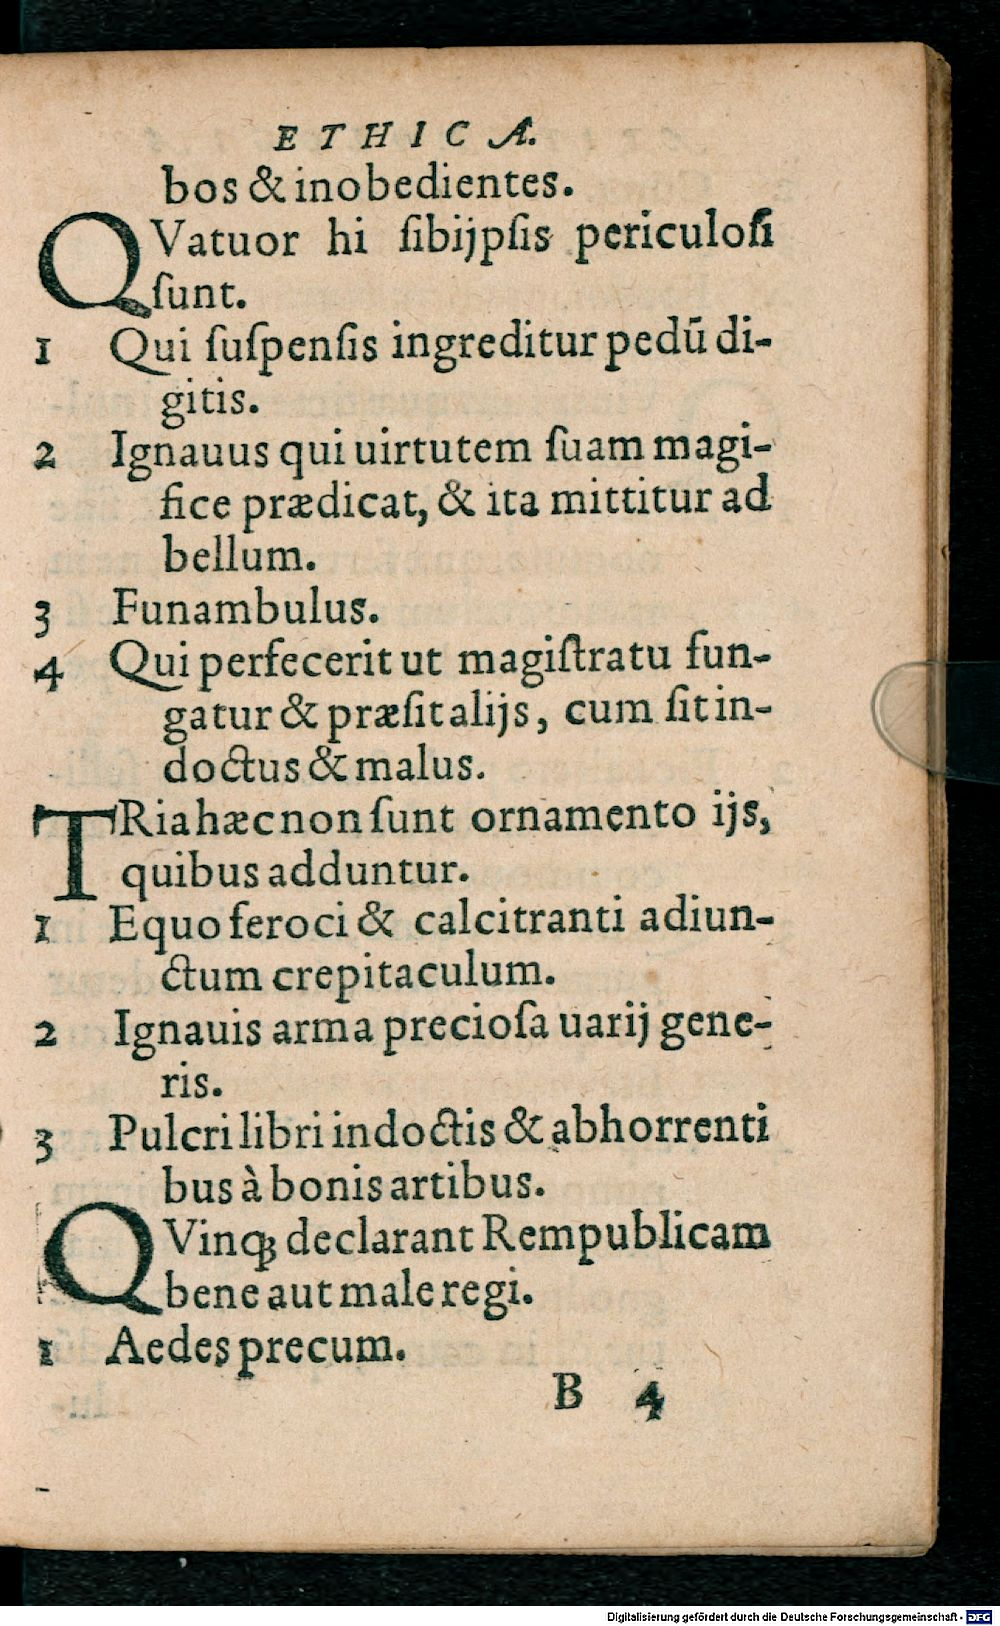 ETHICA.
bos & inobedientes.
QVatuor hi ſibijpſis periculoſi
ſunt.
1 Qui ſuſpenſis ingreditur pedū di-
gitis.
2 Ignauus qui uirtutem ſuam magi-
fice prædicat, & ita mittitur ad
bellum.
3 Funambulus.
4 Qui perfecerit ut magiſtratu fun-
gatur & præſit alijs, cum ſit in-
doctus & malus.
TRia hæc non ſunt ornamento ijs,
quibus adduntur.
1 Equo feroci & calcitranti adiun-
ctum crepitaculum.
2 Ignauis arma precioſa uarij gene-
ris.
3 Pulcri libri indoctis & abhorrenti
bus à bonis artibus.
QVinqꝫ declarant Rempublicam
bene aut male regi.
1 Aedes precum.
B 4
Digitalisierung gefördert durch die Deutsche Forschungsgemeinschaft - DFG